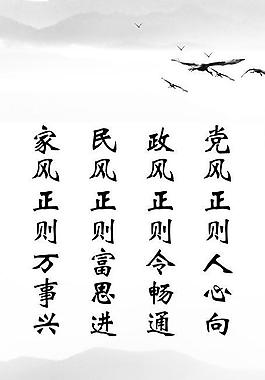 党风正则人心向
政风正则令畅通
民风正则富思进
家风正则万事兴